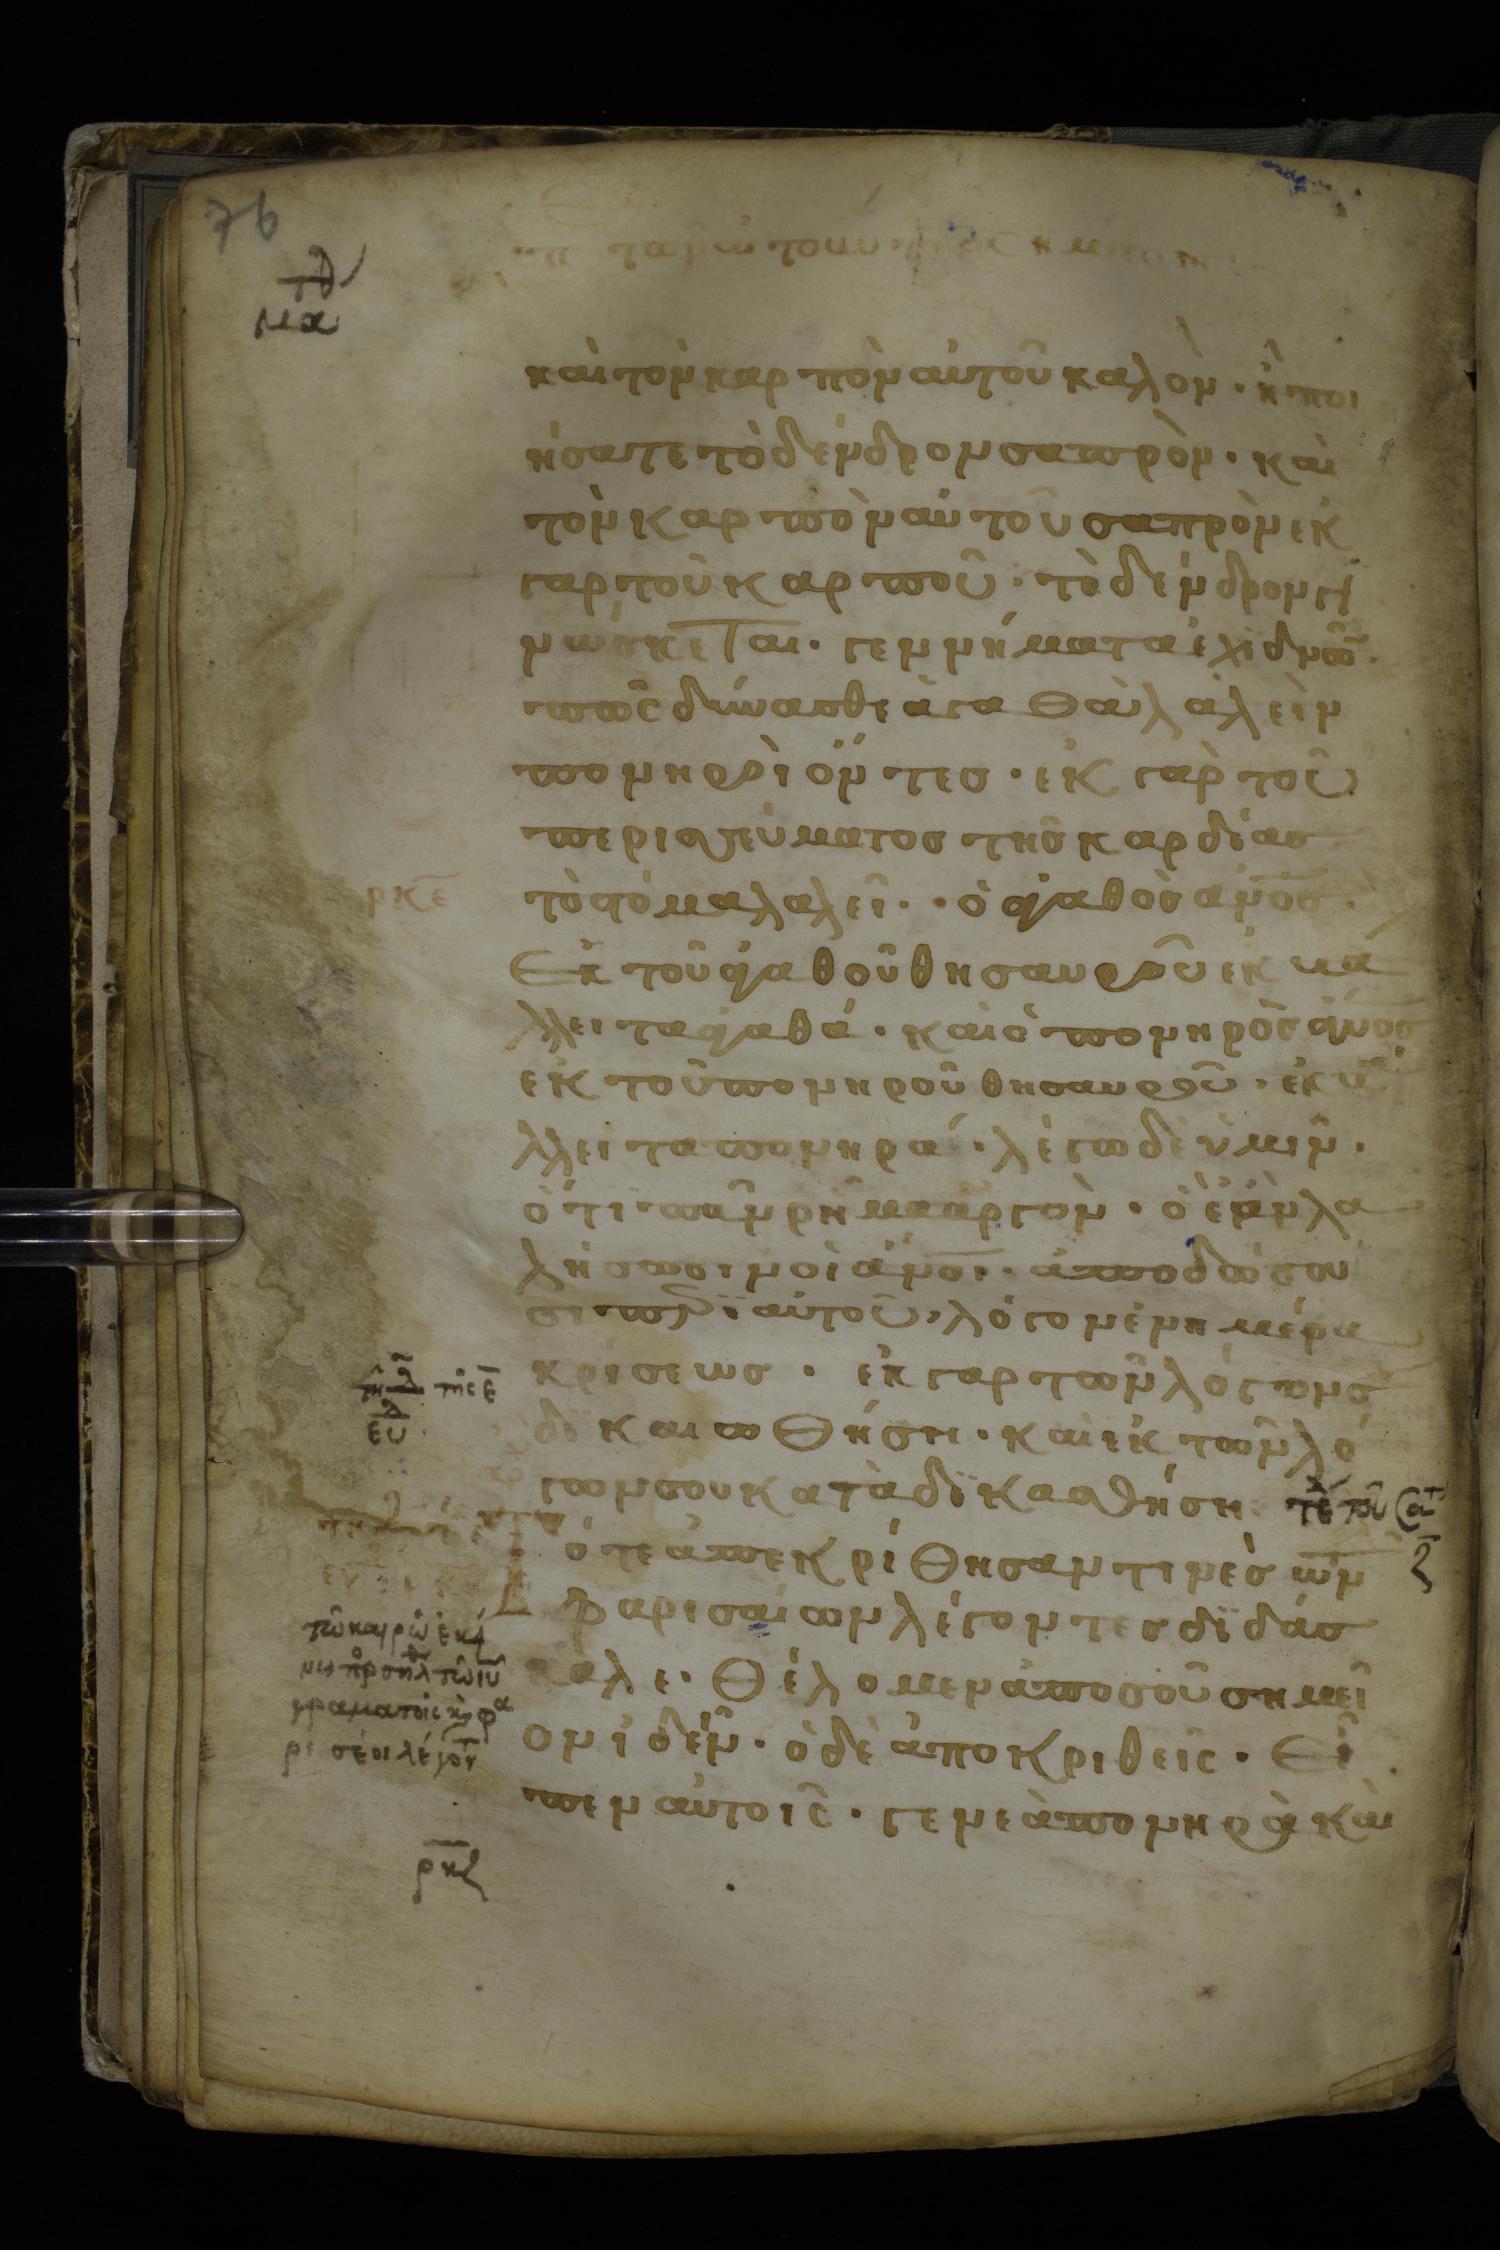 76
μα
καὶ τὸν καρπὸν αὐτοῦ καλὸν · ἢ ποι
ήσατε τὸ δένδρον σαπρὸν · καὶ
τὸν καρπὸν αὐτοῦ σαπρὸν ἐκ
γαρ τοῦ καρποῦ · τὸ δένδρον γι
νώσκεται · γεννήματα ἐχϊδνῶν ·
πῶς δύνασθε ἀγαθὰ λαλεῖν
πονηρὶ ὄντες · ἐκ γαρ τοῦ
περισσεύματος τῆς καρδίας
ρκε
τὸ στόμα λαλεῖ · ὁ ἀγαθὸς ἄνος
Ἐκ τοῦ ἀγαθοῦ θησαυροῦ ἐκ βά
λλει τα ἀγαθά · καὶ ὁ πονηρὸς ἄνος
ἐκ τοῦ πονηροῦ θησαυροῦ · ἐκ βά
λλει τα πονηρά · λέγω δὲ ὑμῖν ·
ὅτι πᾶν ρῆμα αργὸν · ὃ ἐὰν λα
λήσωσιν οἱ ἄνοι · ἀποδώσου
σι περϊ αὐτοῦ, λόγον ἐν ημέρα
κρίσεως · ἐκ γαρ τῶν λόγων σ
δϊκαιωθήση · καὶ ἐκ τῶν λό
γων σου κατὰδϊκασθήση
τε του Σατ
ζ
Τότε ἀπεκρίθησαν τινὲς τῶν
Φαρισαίων λέγοντες δϊδάσ
καλε · Θέλομεν ἀπο σοῦ σημεῖ
ον ἰδεῖν · ὁ δὲ ἀποκριθεὶς · Εἶ
πεν αὐτοῖς · γενεὰ πονηρὰ καὶ
τῆ
τῆς ε
ευ
τῶ καιρῶ ἐκεί
νω προσηλθ τῶ ιυ
γραματοις κ φα
ρισέοι λέγοντ
ρκζ